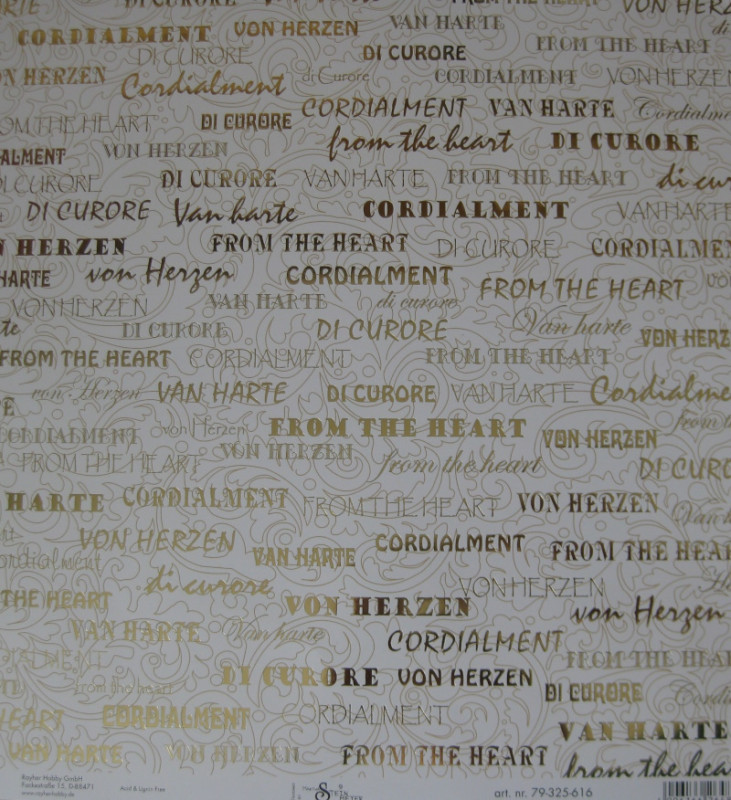 DI CURORE FROM THE HEART VON HERZEN
CORDIALMENT VON HERZEN VAN HARTE di
DI CURORE DI CURORE FROM THE HEART
VON HERZEN Cordialment di Curore CORDIALMENT VON HERZEN
FROM THE HEART DI CURORE CORDIALMENT VAN HARTE Cordialme
ALMENT VON HERZEN from the heart DI CURORE
DI CURORE DI CURORE VAN HARTE FROM THE HEART di cur
DI CURORE Van harte CORDIALMENT VAN HARTE
N HERZEN FROM THE HEART DI CURORE CORDIALMEN
HARTE von Herzen CORDIALMENT FROM THE HEART VO
VON HERZEN VAN HARTE di curore
te DI CURORE DI CURORE Van harte VON HERZ
FROM THE HEART CORDIALMENT FROM THE HEART
von Herzen VAN HARTE DI CURORE VAN HARTE Cordialme
TE CORDIALMENT von Herzen FROM THE HEART VON HERZEN from th
FROM THE HEART VON HERZEN from the heart DI CURO
HARTE CORDIALMENT FROM THE HEART VON HERZEN Van h
VON HERZEN VAN HARTE CORDIALMENT FROM THE HEAR
Cordialment di curore VON HERZEN
THE HEART VON HERZEN von Herzen
VAN HARTE Van harte CORDIALMENT
DIALMENT FROM THE HEAR
DI CURORE VON HERZEN
from the heart DI CURORE Cordia
HEART CORDIALMENT CORDIALMENT
VAN HARTE
VAN HARTE VON HERZEN FROM THE HEART from the hea
Rayher Hobby GmbH
Fockestraße 15, D-88471
www.rayher-hobby.de
Acid & Lignin Free
art. nr. 79-325-616